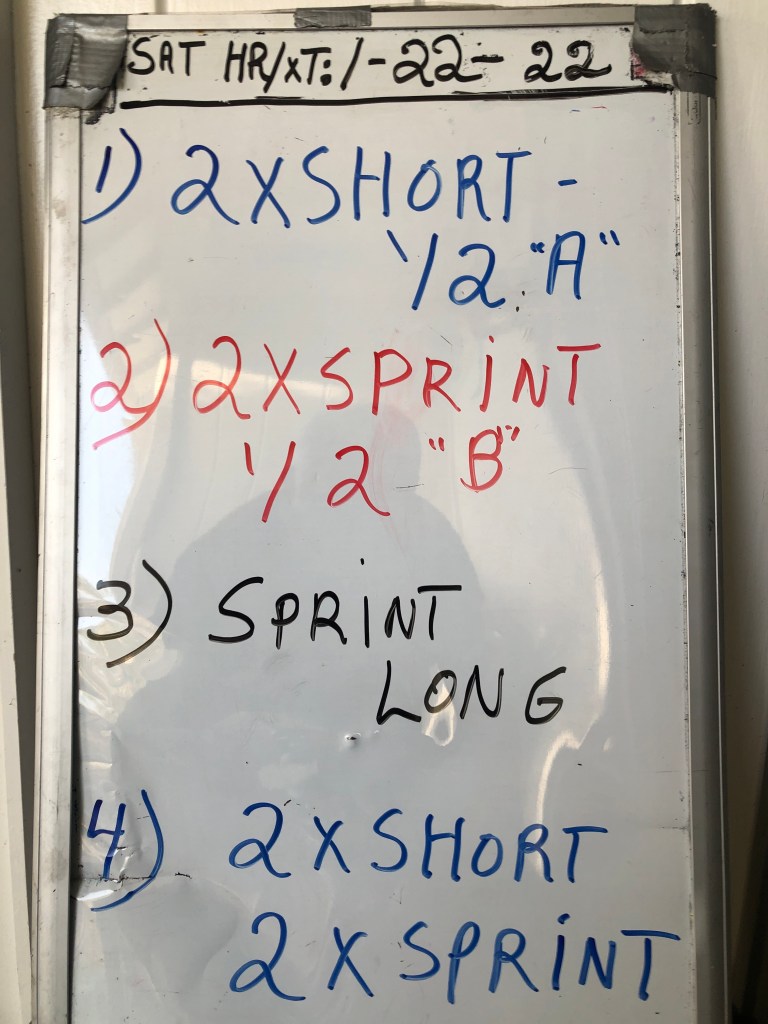 SAT HR/XT: 1-22-22
1) 2XSHORT -
1/2 "A"
2) 2XSPRINT
1/2 "B"
3) SPRINT
LONG
4) 2XSHORT
2XSPRINT